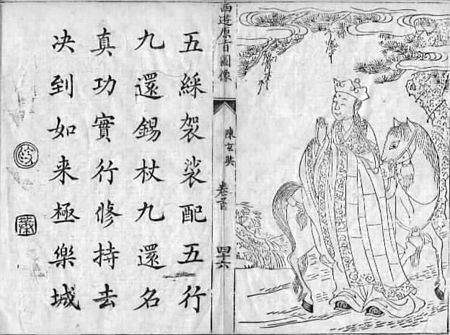 西遊原旨圖像
陳玄奘
卷首
五綵袈裟配五行
九還錫杖九還名
真功實行修持去
决到如来極樂城